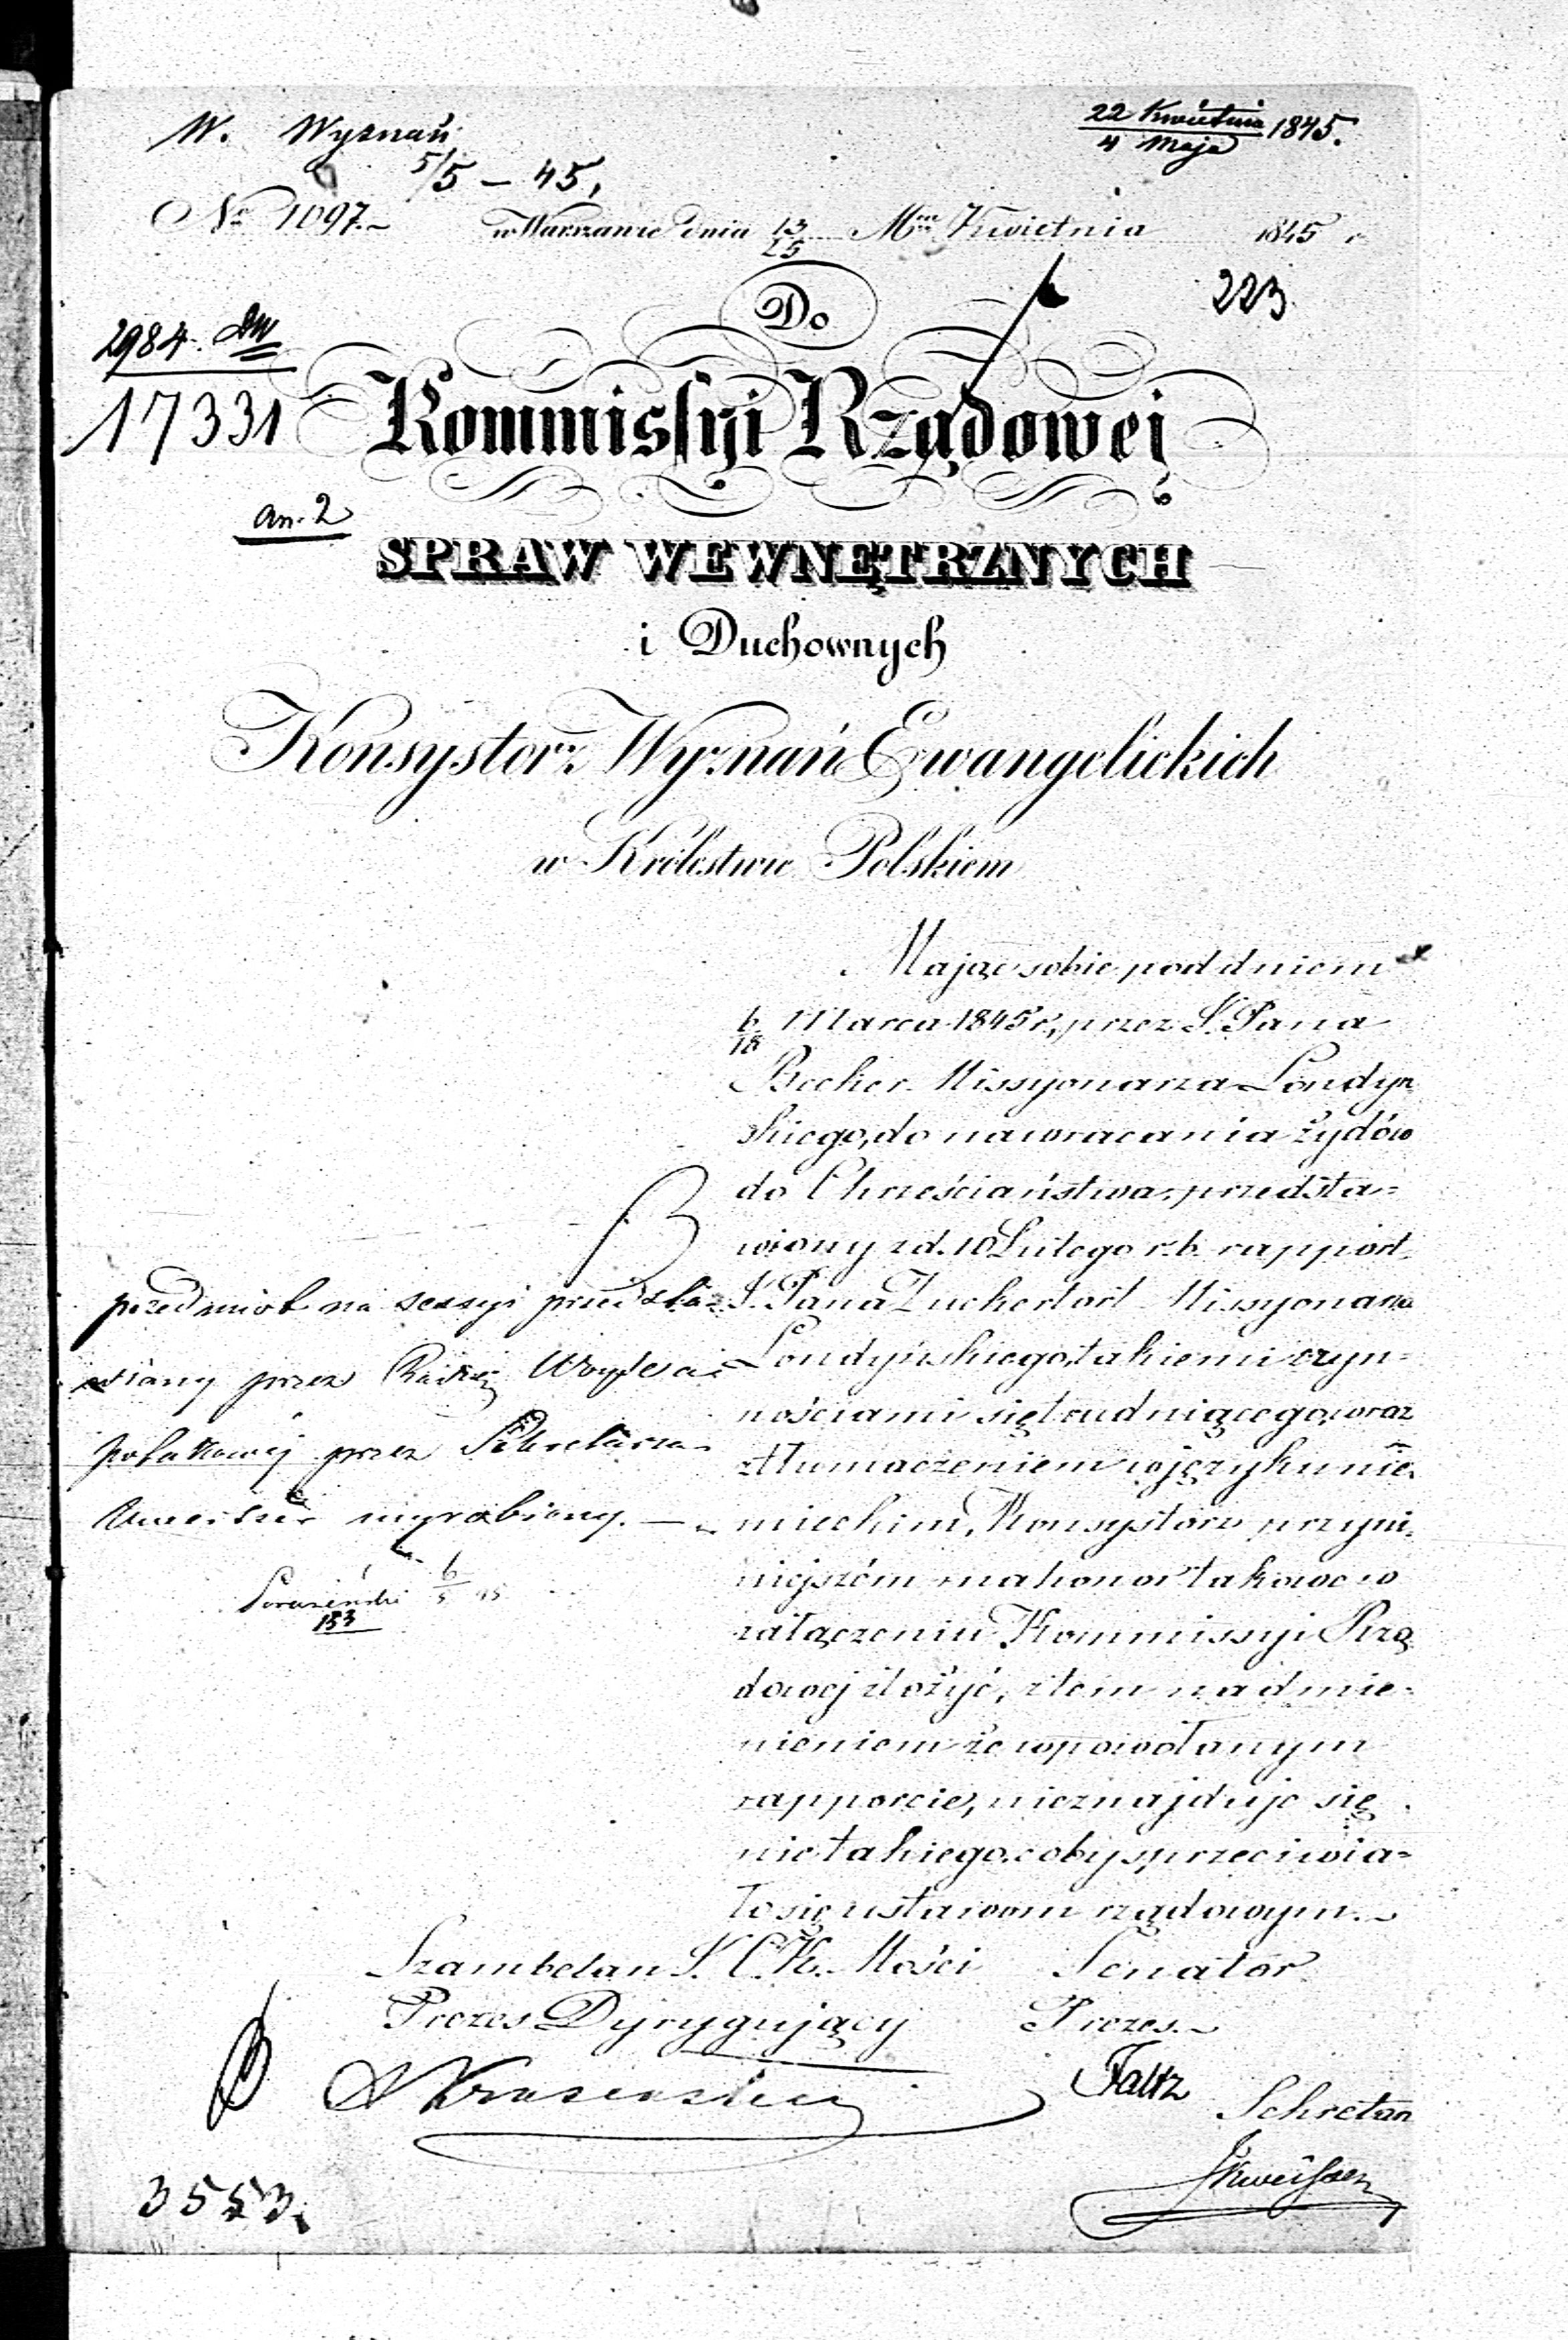 W. Wyznań
5/5 – 45,
22 Kwietnia / 4 Maja 1845.
No 1097.~ w Warszawie dnia 13/25 Mca Kwietnia 1845 r
223
Do
2984.
17331
Kommissyi Rządowej
an. 2
SPRAW WEWNĘTRZNYCH
i Duchownych
Konsystorz Wyznań Ewangelickich
w Królestwie Polskiem
Mając sobie pod dniem
6/18 Marca 1845 r, przez J. Pana
Becker Missyonarza Londyn
skiego, do nawracania żydów
do Chrześciaństwa, przedsta=
wiony z d. 10 Lutego r. b. rapport
J. Pana Zuckertort Missyonarza
Londyńskiego, takiemi czyn=
nościami się trudniącego, wraz
z tłumaczeniem w języku nie
mieckim, Konsystorz przyni
niejszém ma honor takowe w
załączeniu Kommissyi Rzą
dowej złożyć, z tem nadmie=
nieniem że w powołanym
rapporcie, nieznajduje się
nic takiego, coby sprzeciwia=
ło się ustawom rządowym.~
przedmiot na sessyi przedsta=
wiony przez Radcę
przez Sekretarza
wyrobiony. —
6/5 45
153
Szambelan J. C. K. Mości Senator
Prezes Dyrygujący Prezes.~
Sekretarz
3553.